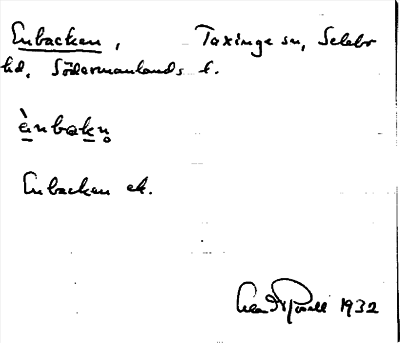 Enbacken, Taxinge sn, Selebo
hd, Södermanlands l.
ènbakn̥
Enbacken ek.
1932